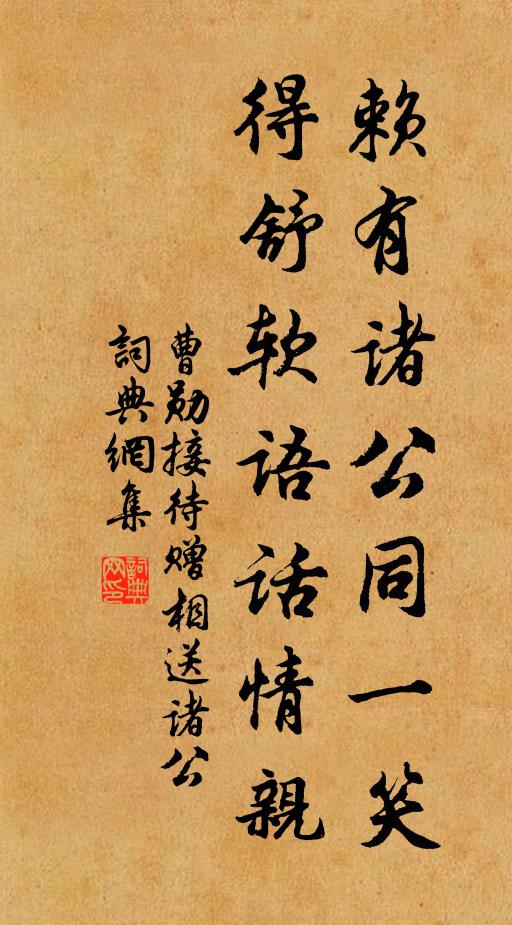 赖有诸公同一笑
得舒软语话情親
曹勋接待赠相送诸公
詞典網集
詞典网印